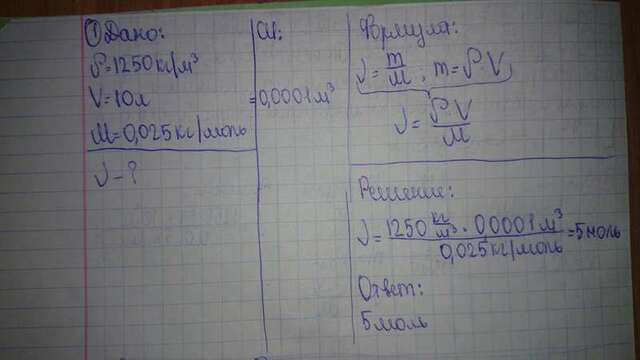 ① Дано:
ρ=1250 кг/м³
V=10л
M=0,025 кг/моль
ν-?
СИ:
=0,0001 м³
Формула:
ν = m/M ; m = ρ·V
ν = ρ·V/M
Решение:
ν = 1250 кг/м³ · 0,0001 м³ / 0,025 кг/моль = 5 моль
Ответ:
5 моль